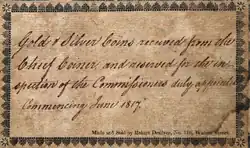 Gold & Silver Coins received from the
Chief Coiner, and reserved for the in-
spection of the Commissioners duly appointed
Commencing June 1817
Made and Sold by Robert Desilver, No. 110, Walnut Street.